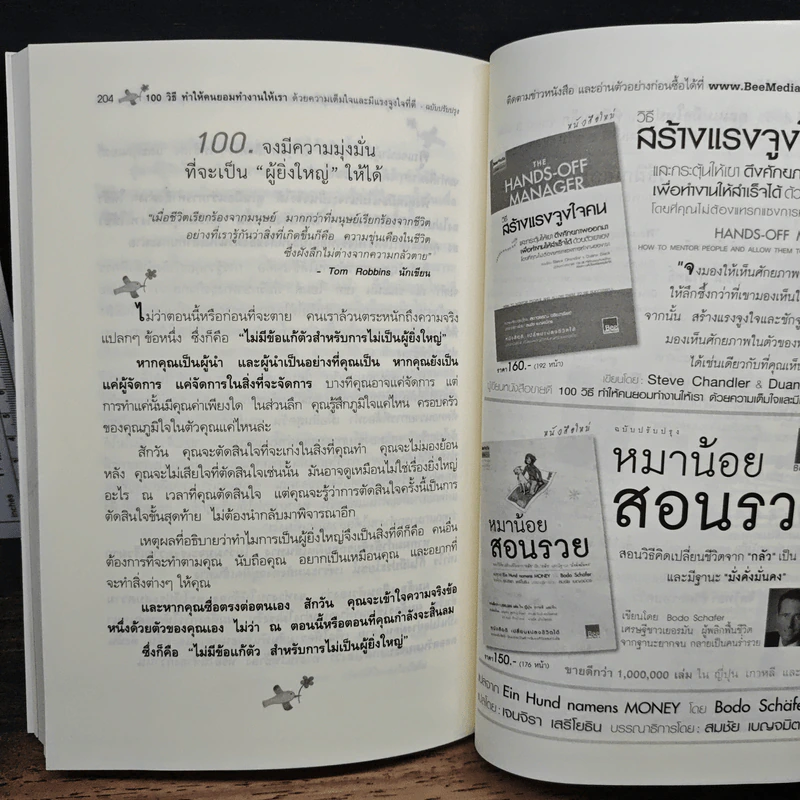 204
100 วิธี ทำให้คนยอมทำงานให้เรา ด้วยความเต็มใจและมีแรงจูงใจที่ดี - ฉบับปรับปรุง
100. จงมีความมุ่งมั่น
ที่จะเป็น “ผู้ยิ่งใหญ่” ให้ได้
"เมื่อชีวิตเรียกร้องจากมนุษย์ มากกว่าที่มนุษย์เรียกร้องจากชีวิต
อย่างที่เรารู้กันว่าสิ่งที่เกิดขึ้นก็คือ ความขุ่นเคืองในชีวิต
ซึ่งฝังลึกไม่ต่างจากความกลัวตาย"
- Tom Robbins นักเขียน
ไม่ว่าตอนนี้หรือก่อนที่จะตาย คนเราล้วนตระหนักถึงความจริง
แปลกๆ ข้อหนึ่ง ซึ่งก็คือ “ไม่มีข้อแก้ตัวสำหรับการไม่เป็นผู้ยิ่งใหญ่”
หากคุณเป็นผู้นำ และผู้นำเป็นอย่างที่คุณเป็น หากคุณยังเป็น
แค่ผู้จัดการ แค่จัดการในสิ่งที่จะจัดการ บางทีคุณอาจแค่จัดการ แต่
การทำแค่นั้นมีคุณค่าเพียงใด ในส่วนลึก คุณรู้สึกภูมิใจแค่ไหน ครอบครัว
ของคุณภูมิใจในตัวคุณแค่ไหนล่ะ
สักวัน คุณจะตัดสินใจที่จะเก่งในสิ่งที่คุณทำ คุณจะไม่มองย้อน
หลัง คุณจะไม่เสียใจที่ตัดสินใจเช่นนั้น มันอาจดูเหมือนไม่ใช่เรื่องยิ่งใหญ่
อะไร ณ เวลาที่คุณตัดสินใจ แต่คุณจะรู้ว่าการตัดสินใจครั้งนี้เป็นการ
ตัดสินใจขั้นสุดท้าย ไม่ต้องนำกลับมาพิจารณาอีก
เหตุผลที่อธิบายว่าทำไมการเป็นผู้ยิ่งใหญ่จึงเป็นสิ่งที่ดีก็คือ คนอื่น
ต้องการที่จะทำตามคุณ นับถือคุณ อยากเป็นเหมือนคุณ และอยากที่
จะทำสิ่งต่างๆ ให้คุณ
และหากคุณซื่อตรงต่อตนเอง สักวัน คุณจะเข้าใจความจริงข้อ
หนึ่งด้วยตัวของคุณเอง ไม่ว่า ณ ตอนนี้หรือตอนที่คุณกำลังจะสิ้นลม
ซึ่งก็คือ “ไม่มีข้อแก้ตัว สำหรับการไม่เป็นผู้ยิ่งใหญ่”
ติดตามข่าวหนังสือ และอ่านตัวอย่างก่อนซื้อได้ที่ www.BeeMedia
หนังสือใหม่
วิธี
สร้างแรงจูงใ
และกระตุ้นให้เขา ดึงศักยภา
เพื่อทำงานให้สำเร็จได้ ด้ว
โดยที่คุณไม่ต้องแทรกแซงการ
HANDS-OFF M
HOW TO MENTOR PEOPLE AND ALLOW THEM T
THE
HANDS-OFF
MANAGER
วิธี
สร้างแรงจูงใจคน
และกระตุ้นให้เขา ดึงศักยภาพออกมา
เพื่อทำงานให้สำเร็จได้ ด้วยตัวของเขาเอง
Bee
ราคา 160.- (192 หน้า)
"จงมองให้เห็นศักยภาพ
ให้ลึกซึ้งกว่าที่เขามองเห็นใ
จากนั้น สร้างแรงจูงใจและชักจู
มองเห็นศักยภาพในตัวของพ
ได้เช่นเดียวกับที่คุณเห็น
เขียนโดย: Steve Chandler & Duan
ผู้เขียนหนังสือขายดี 100 วิธี ทำให้คนยอมทำงานให้เรา ด้วยความเต็มใจและมีแ
หนังสือใหม่
ฉบับปรับปรุง
หมาน้อย
สอนรวย
สอนวิธีคิดเปลี่ยนชีวิตจาก "กลัว" เป็น
และมีฐานะ "มั่งคั่งมั่นคง"
หมาน้อย
สอนรวย
Ein Hund namens MONEY
Bodo Schäfer
ราคา 150.- (176 หน้า)
เขียนโดย Bodo Schafer
เศรษฐีชาวเยอรมัน ผู้พลิกฟื้นชีวิต
จากฐานะยากจน กลายเป็นคนร่ำรวย
ขายดีกว่า 1,000,000 เล่ม ใน ญี่ปุ่น เกาหลี และ
แปลจาก Ein Hund namens MONEY โดย Bodo Schäfe
แปลโดย: เจนจิรา เสรีโยธิน บรรณาธิการโดย: สมชัย เบญจมิต